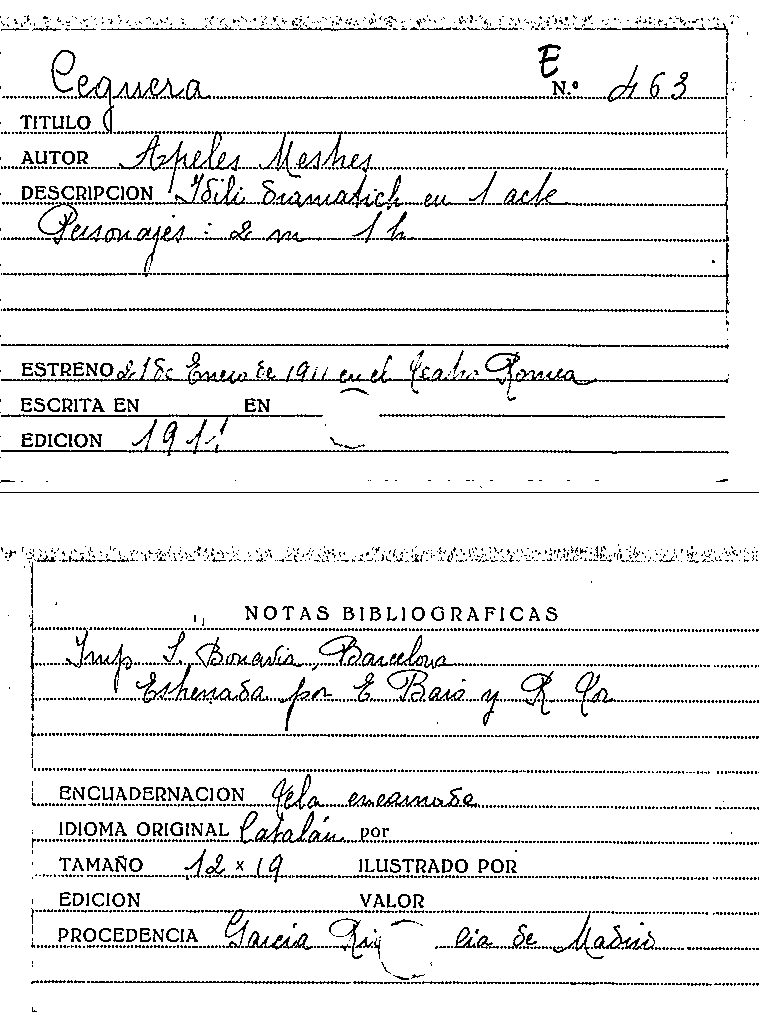 E
Ceguera N.º 463
TITULO
AUTOR Apeles Mestres
DESCRIPCION Idili dramatich en 1 acte
Personajes: 2 m 1 h
ESTRENO 21 de Enero de 1911 en el Teatro Romea
ESCRITA EN EN
EDICION 1911
NOTAS BIBLIOGRAFICAS
Imp S. Bonavia, Barcelona
Estrenada por E y R
ENCUADERNACION Tela encarnada
IDIOMA ORIGINAL Catalán por
TAMAÑO 12 x 19 ILUSTRADO POR
EDICION VALOR
PROCEDENCIA García de Madrid